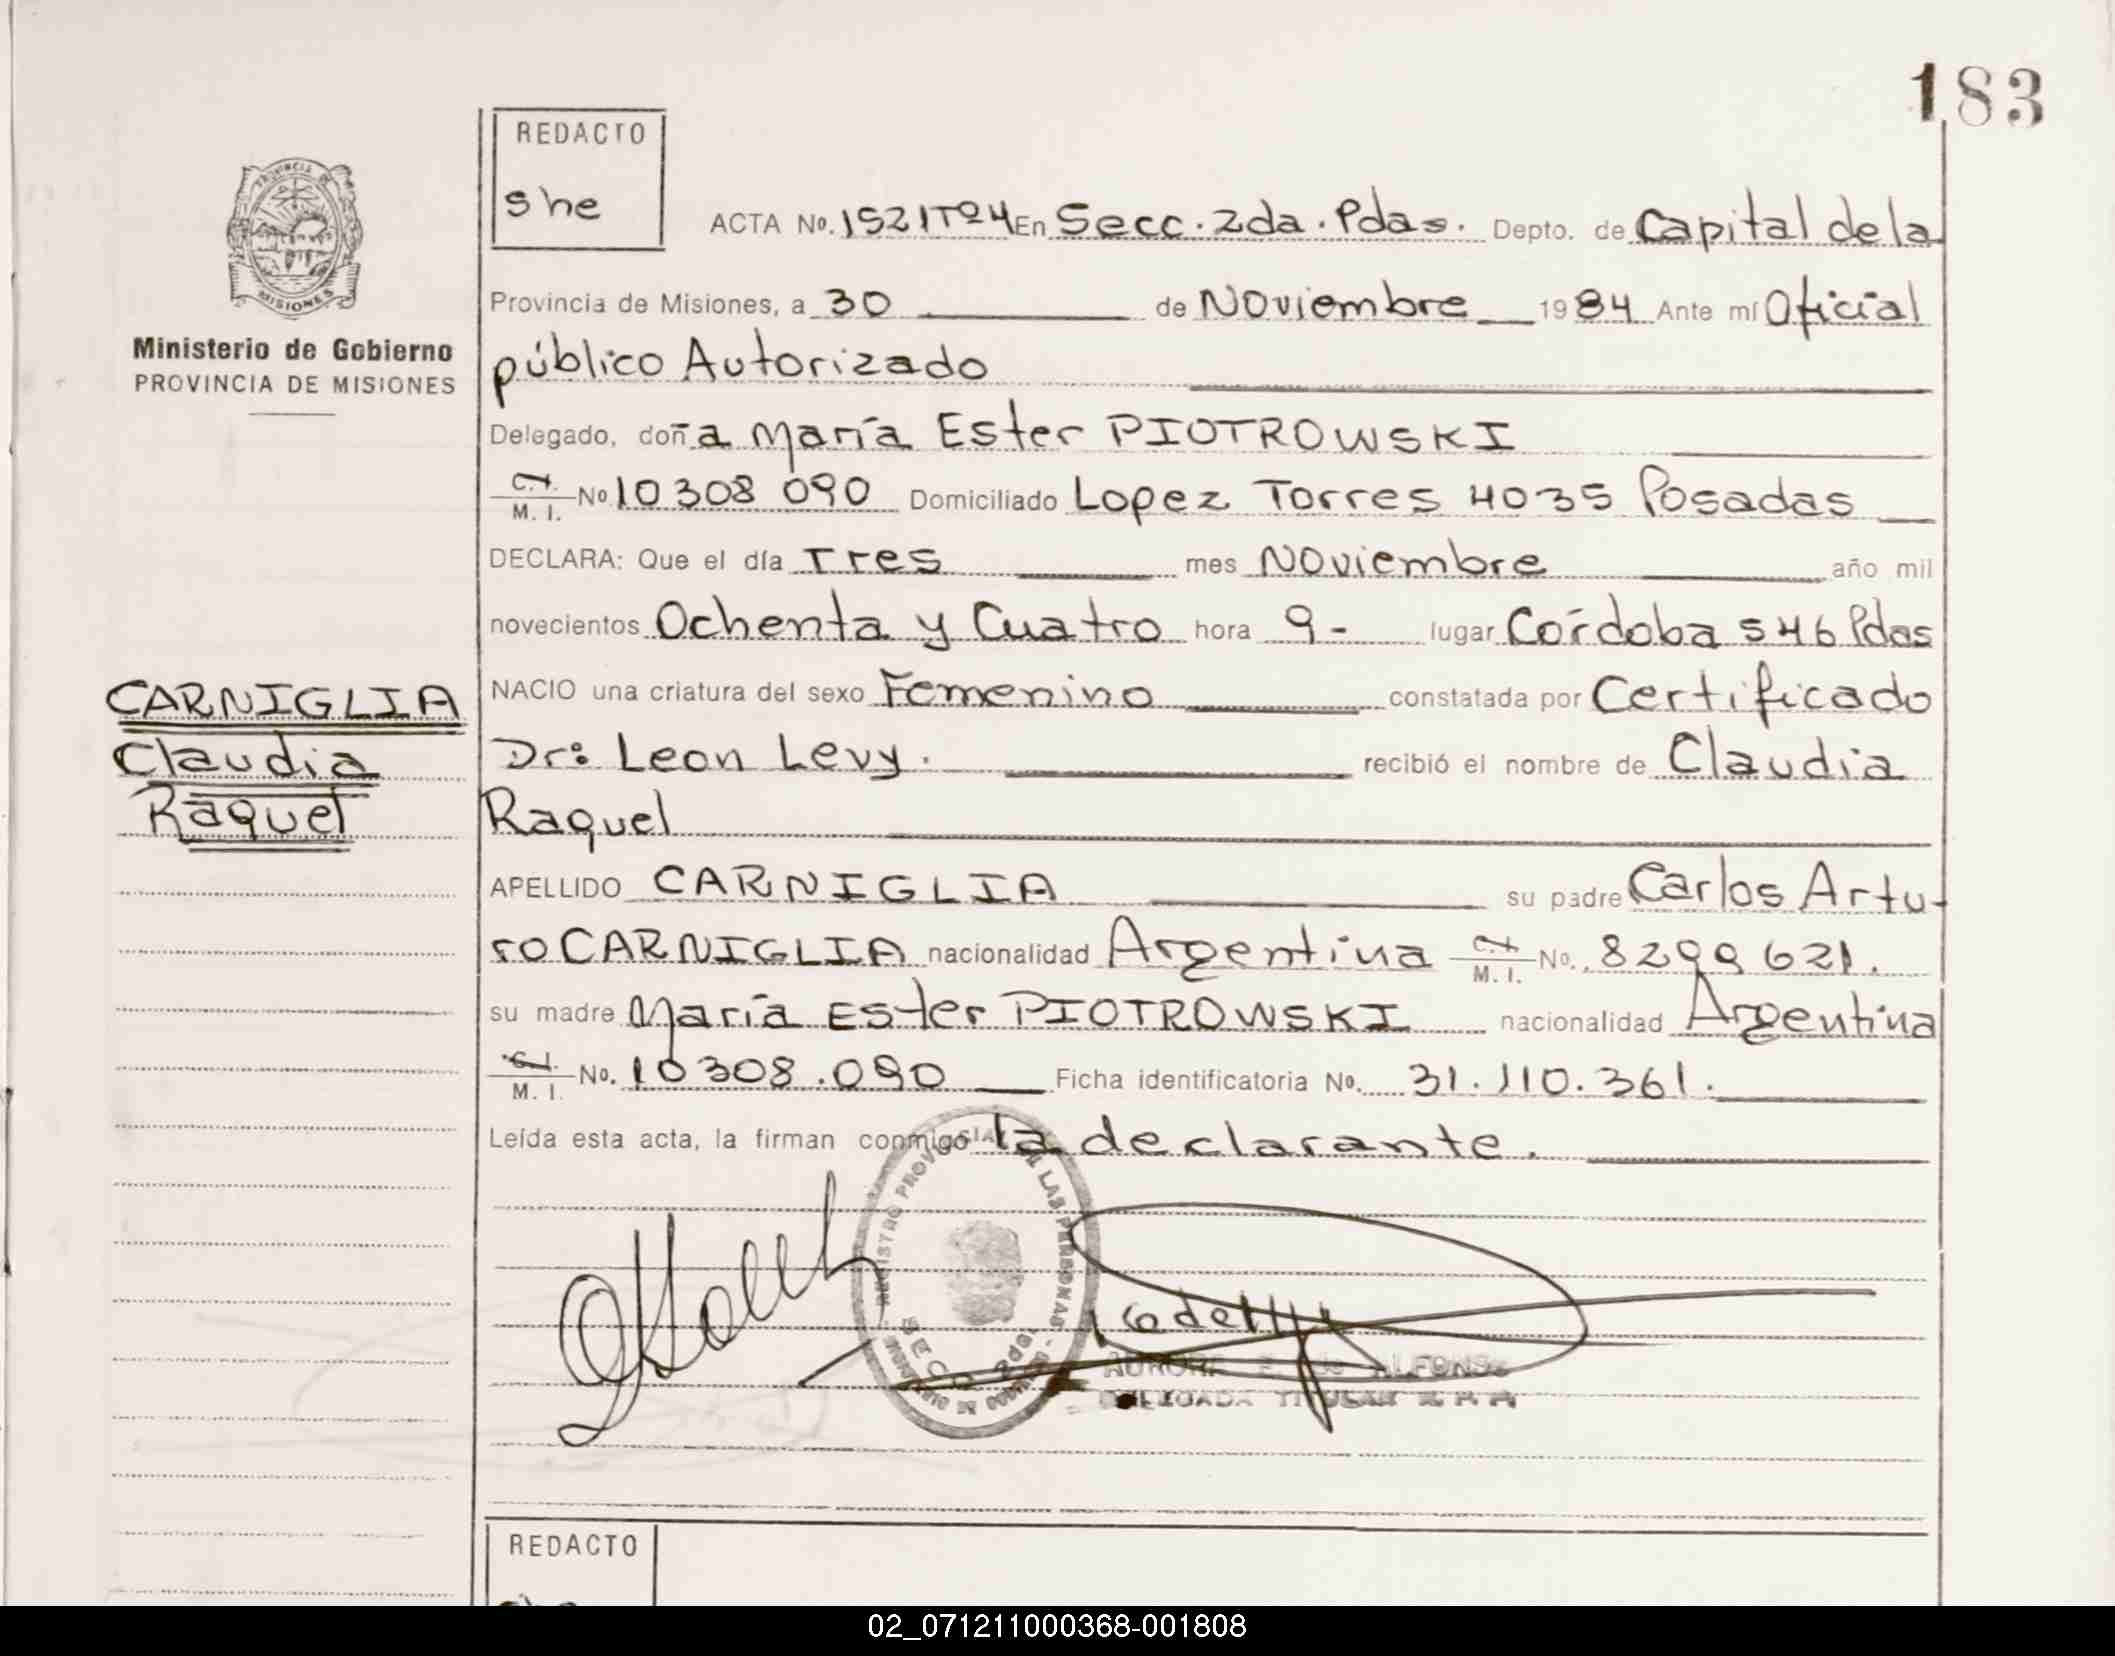 183
REDACTO
she
ACTA Nº. 1521T24 En Secc. 2da. Pdas. Depto. de Capital de la
Provincia de Misiones, a 30 de Noviembre 1984 Ante mí Oficial
público Autorizado
Delegado, doña María Ester PIOTROWSKI
C.I. M. I. Nº 10308 090 Domiciliado Lopez Torres 4035 Posadas
DECLARA: Que el día Tres mes Noviembre año mil
novecientos Ochenta y Cuatro hora 9- lugar Córdoba 546 Pdas
NACIO una criatura del sexo Femenino constatada por Certificado
Dr: Leon Levy. recibió el nombre de Claudia
Raquel
APELLIDO CARNIGLIA su padre Carlos Artu-
ro CARNIGLIA nacionalidad Argentina C.I. M. I. Nº. 8299 621.
su madre María Ester PIOTROWSKI nacionalidad Argentina
C.I. M. I. Nº. 10308.090 Ficha identificatoria Nº. 31.110.361.
Leída esta acta, la firman conmigo la declarante.
PROVINCIA DE
MISIONES
Ministerio de Gobierno
PROVINCIA DE MISIONES
CARNIGLIA
Claudia
Raquel
REGISTRO PROVINCIAL DE LAS PERSONAS
SECC 2da.
MINISTERIO DE GOBIERNO
de ALFONSO
DELEGADA TITULAR
REDACTO
02_071211000368-001808